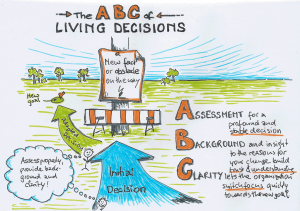 The ABC of
LIVING DECISIONS
a
New fact or
obstacle
on the
way
New
goal
ASSESSMENT FOR A
profound and
stable decision
BACKGROUND and insight
to the reasons for
your change build
trust & understanding
CLARITY lets the organization
switch focus quickly
towards the new goal
Assess properly,
provide back-
ground and
clarity!
Initial
Decision